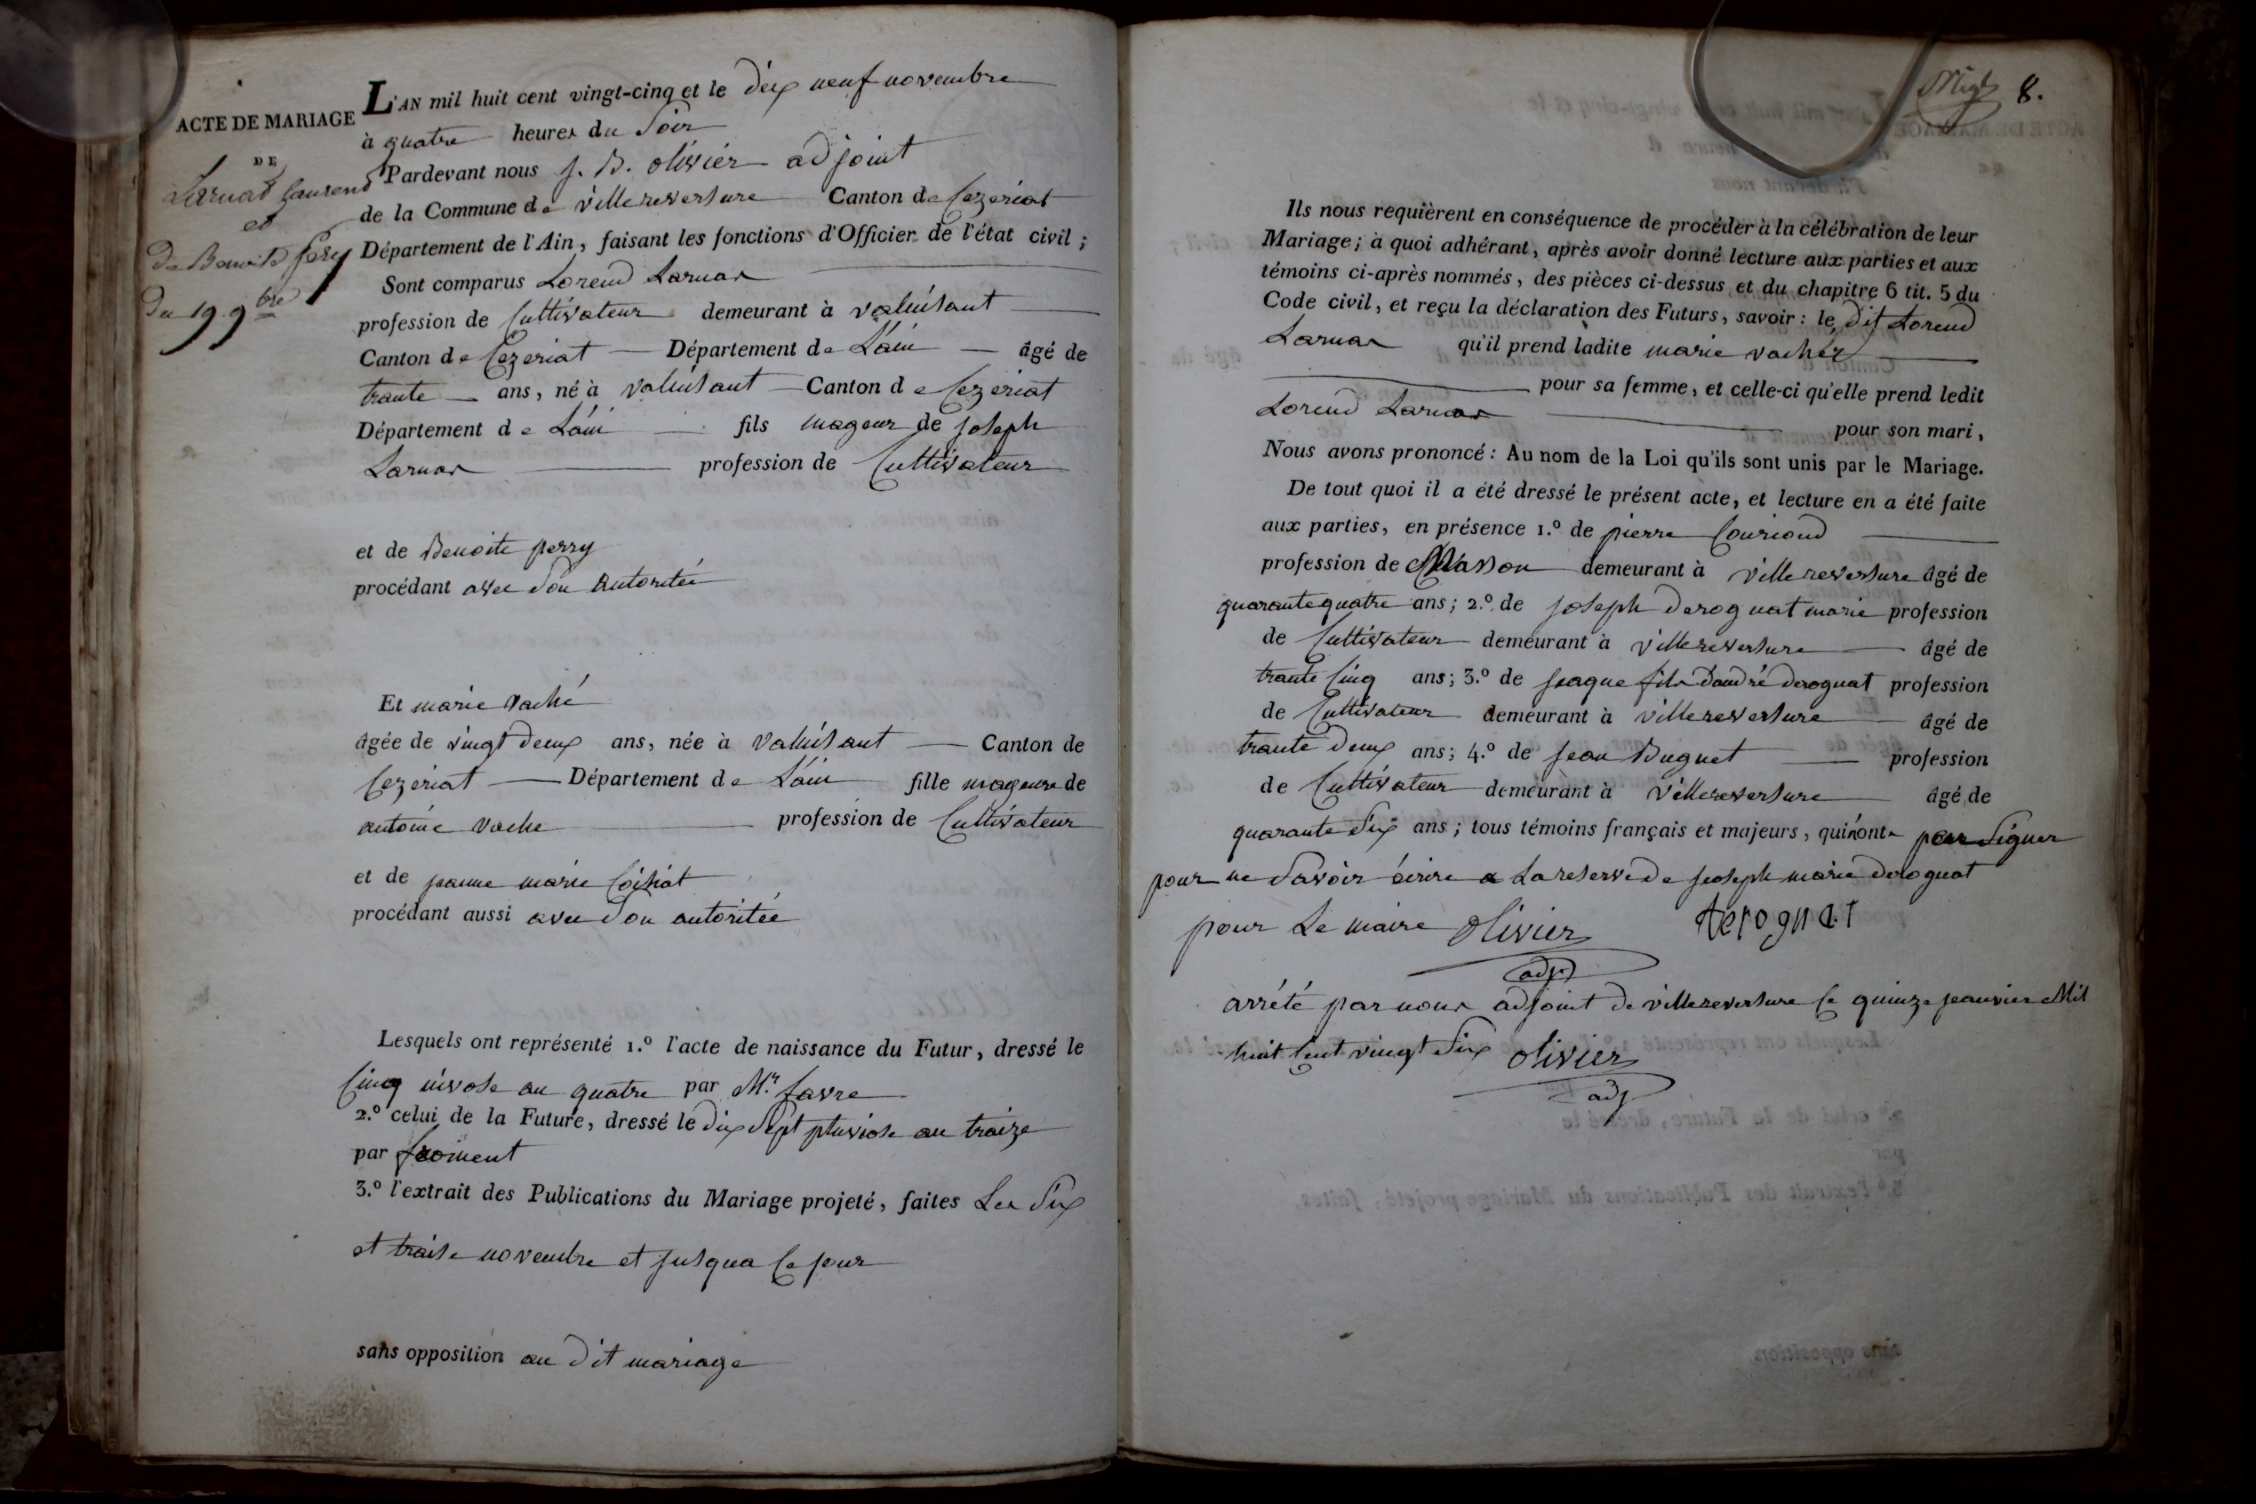 ACTE DE MARIAGE
DE
Larnat laurend
et
de Benoite pery
du 19 9bre
L'AN mil huit cent vingt-cinq et le dix neuf novembre
à quatre heures du Soir
Pardevant nous J. B. olivier adjoint
de la Commune de villereversure Canton de Cezeriat
Département de l'Ain, faisant les fonctions d'Officier de l'état civil;
Sont comparus Lorend Larnar
profession de Cultivateur demeurant à valuisant
Canton de Cezeriat Département de Lain âgé de
trante ans, né à valuisant Canton de Cezeriat
Département de Lain fils mageur de joseph
Larnar profession de Cultivateur
et de Benoite perry
procédant avec Son Autoritée
Et marie vaché
âgée de vingt deux ans, née à valuisant Canton de
Cezeriat Département de Lain fille mageure de
antoine vache profession de Cultivateur
et de jeanne marie
procédant aussi avec Son autoritée
Lesquels ont représenté 1.º l'acte de naissance du Futur, dressé le
Cinq nivose an quatre par Mr. favre
2.º celui de la Future, dressé le dix Sept pluviose an traize
par froment
3.º l'extrait des Publications du Mariage projeté, faites Les Six
et traise novembre et jusqua Ce jour
sans opposition au dit mariage
8.
Ils nous requièrent en conséquence de procéder à la célébration de leur
Mariage; à quoi adhérant, après avoir donné lecture aux parties et aux
témoins ci-après nommés, des pièces ci-dessus, et du chapitre 6 tit. 5 du
Code civil, et reçu la déclaration des Futurs, savoir: le dit Lorend
Larnar qu'il prend ladite marie vachéz
pour sa femme, et celle-ci qu'elle prend ledit
Lorend Larnar pour son mari,
Nous avons prononcé: Au nom de la Loi qu'ils sont unis par le Mariage.
De tout quoi il a été dressé le présent acte, et lecture en a été faite
aux parties, en présence 1.º de pierre Couriond
profession de Masson demeurant à villereversure âgé de
quarante quatre ans; 2.º de joseph derognat marie profession
de Cultivateur demeurant à villereversure âgé de
trante Cinq ans; 3.º de jaque fils dandré derognat profession
de Cultivateur demeurant à villereversure âgé de
trante deux ans; 4.º de jean Buguet profession
de Cultivateur demeurant à villereversure âgé de
quarante Six ans; tous témoins français et majeurs, qui n'ont pas Signer
pour ne Savoir écrire a La reserve de joseph marie derognat
pour Le maire olivier derognat
adj
arrété par nous adjoint de villereversure Ce quinze jeanvier Mil
huit Cent vingt Six olivier
adj